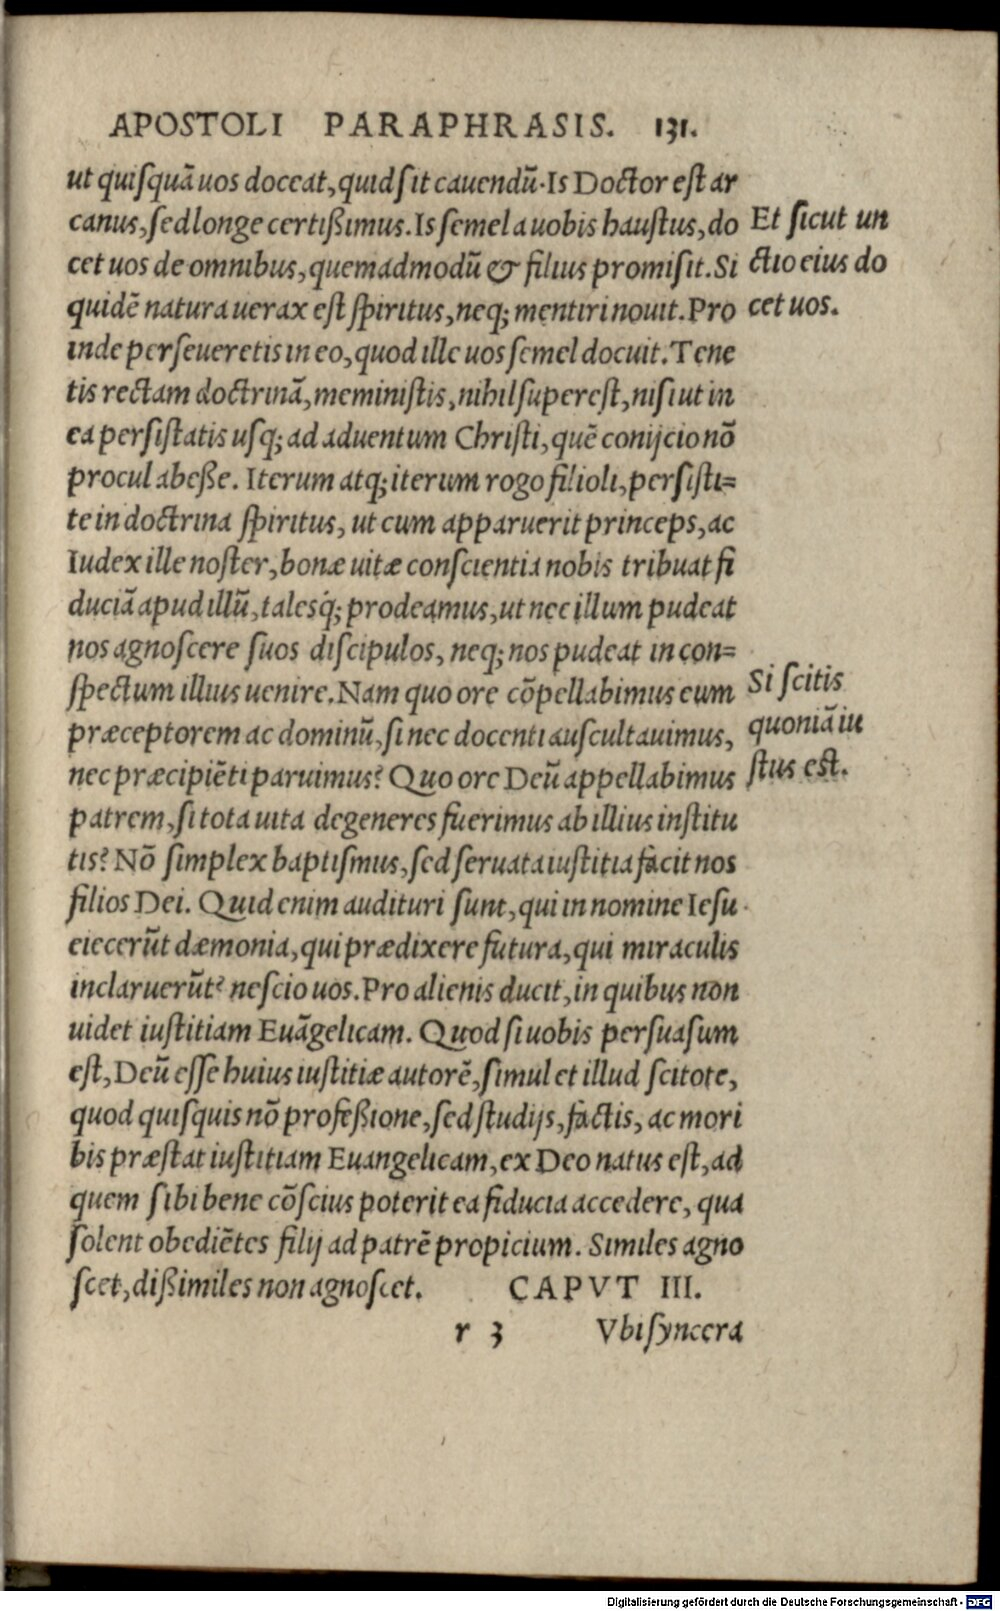 APOSTOLI PARAPHRASIS. 131.
ut quiſquā uos doceat, quid ſit cauendū. Is Doctor eſt ar
canus, ſed longe certiſſimus. Is ſemel a uobis hauſtus, do
cet uos de omnibus, quemadmodū & filius promiſit. Si
quidē natura uerax eſt ſpiritus, neq; mentiri nouit. Pro
inde perſeueretis in eo, quod ille uos ſemel docuit. Tene
tis rectam doctrinā, meminiſtis, nihil ſupereſt, niſi ut in
ea perſiſtatis uſq; ad aduentum Chriſti, quē conijcio nō
procul abeſſe. Iterum atq; iterum rogo filioli, perſiſti=
te in doctrina ſpiritus, ut cum apparuerit princeps, ac
Iudex ille noſter, bonæ uitæ conſcientia nobis tribuat fi
duciā apud illū, talesq́; prodeamus, ut nec illum pudeat
nos agnoſcere ſuos diſcipulos, neq; nos pudeat in con=
ſpectum illius uenire. Nam quo ore cōpellabimus eum
præceptorem ac dominū, ſi nec docenti auſcultauimus,
nec præcipiēti paruimus? Quo ore Deū appellabimus
patrem, ſi tota uita degeneres fuerimus ab illius inſtitu
tis? Nō ſimplex baptiſmus, ſed ſeruata iuſtitia facit nos
filios Dei. Quid enim audituri ſunt, qui in nomine Ieſu
eiecerūt dæmonia, qui prædixere futura, qui miraculis
inclaruerūt? neſcio uos. Pro alienis ducit, in quibus non
uidet iuſtitiam Euāgelicam. Quod ſi uobis perſuaſum
eſt, Deū eſſe huius iuſtitiæ autorē, ſimul et illud ſcitote,
quod quiſquis nō profeſſione, ſed ſtudijs, factis, ac mori
bis præſtat iuſtitiam Euangelicam, ex Deo natus eſt, ad
quem ſibi bene cōſcius poterit ea fiducia accedere, qua
ſolent obediētes filij ad patrē propicium. Similes agno
ſcet, diſſimiles non agnoſcet. CAPVT III.
r 3 Vbi ſyncera
Et ſicut un
ctio eius do
cet uos.
Si ſcitis
quoniā iu
ſtus eſt.
Digitalisierung gefördert durch die Deutsche Forschungsgemeinschaft - DFG